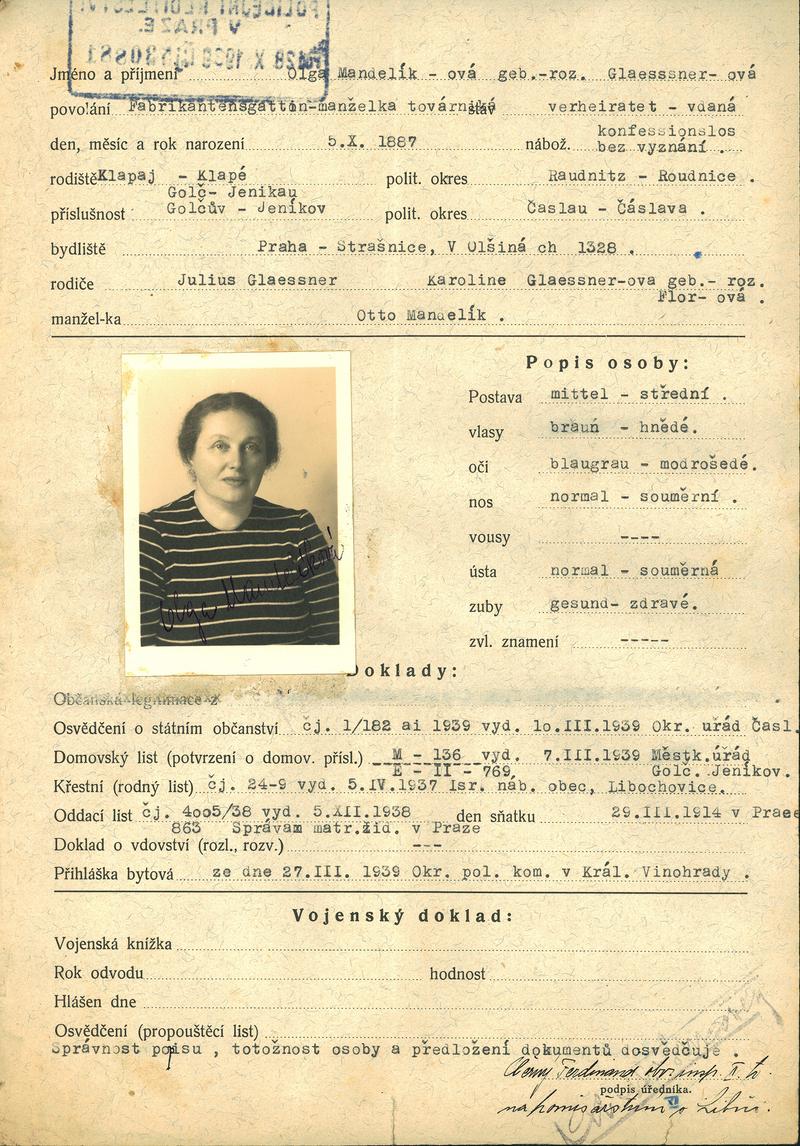 POLICEJNÍ ŘEDITELSTVÍ
V PRAZE.
28 X 1939
Jméno a příjmení Olga Mandelík - ová geb.-roz. Glaesssner- ová
povolání Fabrikantensgattin-manželka továrníka stav verheiratet - vdaná
den, měsíc a rok narození 5.X. 1887 nábož. konfessionslos
bez vyznání .
rodiště Klapaj - Klapé polit. okres Raudnitz - Roudnice .
Golč- Jenikau
příslušnost Golčův - Jeníkov polit. okres Časlau - Čáslava .
bydliště Praha - Strašnice, V Olšiná ch 1328 .
rodiče Julius Glaessner Karoline Glaessner-ova geb.- roz.
Flor- ová .
manžel-ka Otto Mandelík .
Popis osoby:
Postava mittel - střední .
vlasy braun - hnědé.
oči blaugrau - modrošedé.
nos normal - souměrní .
vousy ----
ústa normal - souměrná
zuby gesund- zdravé.
zvl. znamení -----
Olga Mandelíková
Doklady:
Občanská legitimace z
Osvědčení o státním občanství čj. 1/182 ai 1939 vyd. 1o.III.1939 Okr. uřád Časl.
Domovský list (potvrzení o domov. přísl.) M - 136 vyd. 7.III.1939 Městk.úřád
E - II - 769, Golč. Jeníkov.
Křestní (rodný list) čj. 24-9 vyd. 5.IV.1937 Isr. náb. obec, Libochovice.
Oddací list čj. 4oo5/38 vyd. 5.XII.1938 den sňatku 29.III.1914 v Praze
863 Správam matr.žid. v Praze
Doklad o vdovství (rozl., rozv.) ---
Přihláška bytová ze dne 27.III. 1939 Okr. pol. kom. v Král. Vinohrady .
Vojenský doklad:
Vojenská knížka
Rok odvodu hodnost
Hlášen dne
Osvědčení (propouštěcí list)
Správnost popisu , totožnost osoby a předložení dokumentů dosvědčuje .
Černý Ferdinand obv. insp. II. tř.
podpis úředníka.
na komisařství v Libni.